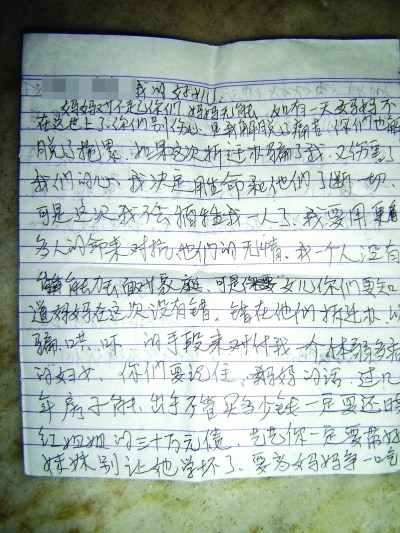 我的好女儿:
妈妈对不起你们,妈妈无能,如有一天妈妈不
在这世上了,你们别伤心,是我解脱了痛苦,你们也解
脱了拖累,如果这次拆迁办骗了我,又伤害了
我们的心,我决定用生命和他们了断一切,
可是这次我不会牺牲我一人了,我要用更多
多人的命来对抗他们的无情,我一个人没有
能力面对家庭,可是女儿你们要知
道妈妈在这次没有错,错在他们拆迁办,以
骗、哄、吓的手段来对付我一个体弱多病
的妇女,你们要记住,妈妈的话,过几
年房子能出手不管是多少钱一定要还晓
红姐姐的三十万元债,你一定要带好
妹妹别让她学坏了,要为妈妈争一口气